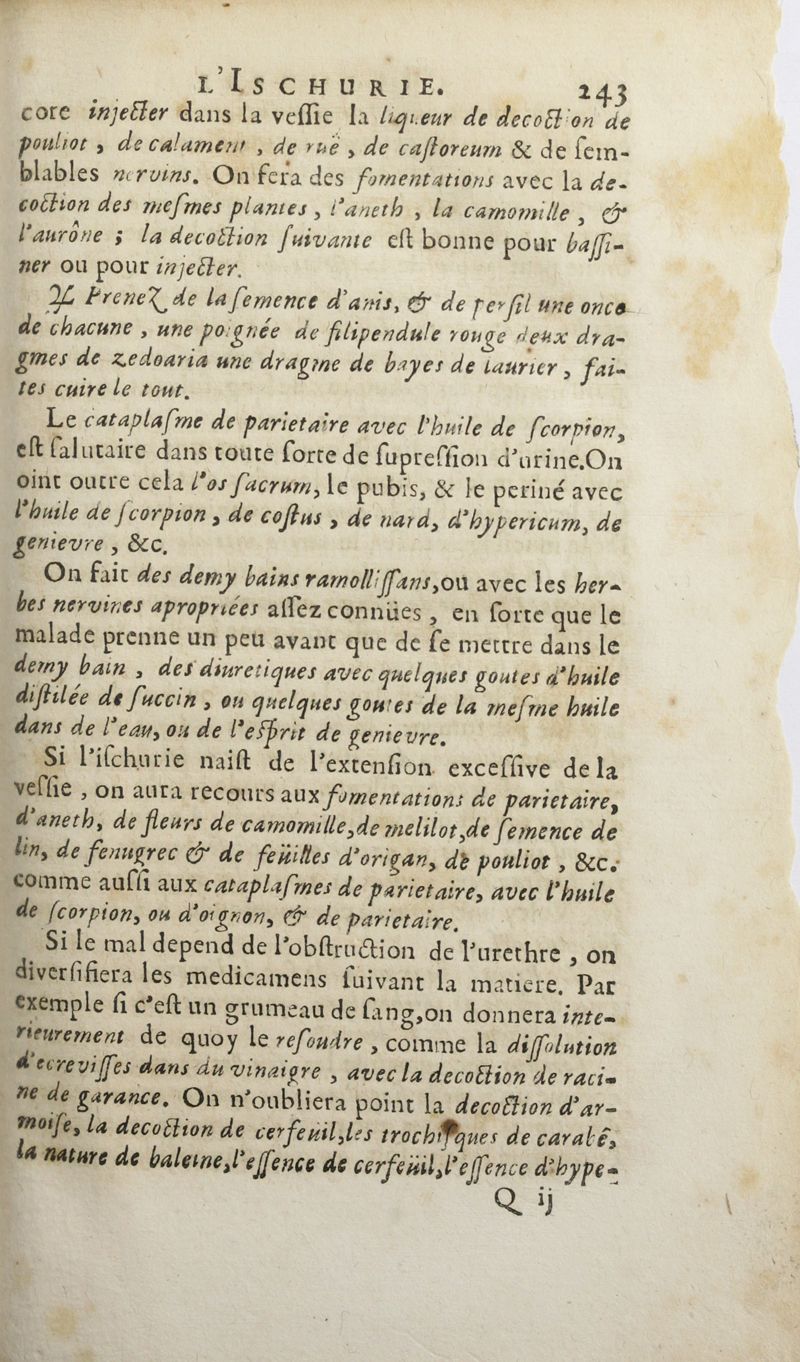 L'ISCHURIE. 243
core injecter dans la veſſie la liqueur de decoction de
pouliot, de calament, de ruë, de caſtoreum & de ſem-
blables nervins. On fera des fomentations avec la de-
coction des meſmes plantes, l'aneth, la camomille, &
l'aurône; la decoction ſuivante eſt bonne pour baſſi-
ner ou pour injecter.
♃ Prenez de la ſemence d'anis, & de perſil une once
de chacune, une poignée de filipendule rouge deux dra-
gmes de zedoaria une dragme de bayes de laurier, fai-
tes cuire le tout.
Le cataplaſme de parietaire avec l'huile de ſcorpion,
eſt ſalutaire dans toute ſorte de ſupreſſion d'urine. On
oint outre cela l'os ſacrum, le pubis, & le periné avec
l'huile de ſcorpion, de coſtus, de nard, d'hypericum, de
genievre, &c.
On fait des demy bains ramolliſſans, ou avec les her-
bes nervines apropriées aſſez connües, en ſorte que le
malade prenne un peu avant que de ſe mettre dans le
demy bain, des diuretiques avec quelques goutes d'huile
diſtilée de ſuccin, ou quelques goutes de la meſme huile
dans de l'eau, ou de l'eſprit de genievre.
Si l'iſchurie naiſt de l'extenſion exceſſive de la
veſſie, on aura recours aux fomentations de parietaire,
d'aneth, de fleurs de camomille, de melilot, de ſemence de
lin, de fenugrec & de feüilles d'origan, de pouliot, &c.
comme auſſi aux cataplaſmes de parietaire, avec l'huile
de ſcorpion, ou d'oignon, & de parietaire.
Si le mal depend de l'obſtruction de l'urethre, on
diverſifiera les medicamens ſuivant la matiere. Par
exemple ſi c'eſt un grumeau de ſang, on donnera inte-
rieurement de quoy le reſoudre, comme la diſſolution
d'ecreviſſes dans du vinaigre, avec la decoction de raci-
ne de garance. On n'oubliera point la decoction d'ar-
moiſe, la decoction de cerfeuil, les trochiſques de carabé,
la nature de baleine, l'eſſence de cerfeüil, l'eſſence d'hype-
Q ij